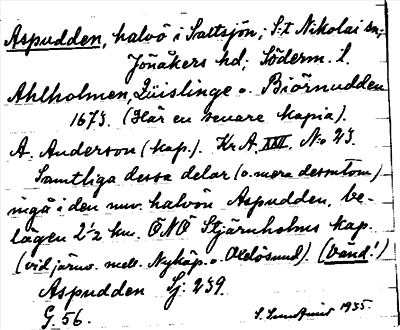 Aspudden, halvö i Saltsjön, S:t Nikolai sn;
Jönåkers hd; Söderm. l.
Ahlholmen, Qvislinge o. Biörnudden
1673. (Här en senare kopia).
A. Anderson (kap.). Kr.A. XXII. N:o 23.
Samtliga dessa delar (o. mera dessutom)
ingå i den nuv. halvön Aspudden, be-
lägen 2 1/2 km. ÖNÖ Stjärnholms kap.
(vid järnv. mell. Nyköp. o. Oxelösund). (Vänd!)
Aspudden Sj. 239.
G 56. 1935.